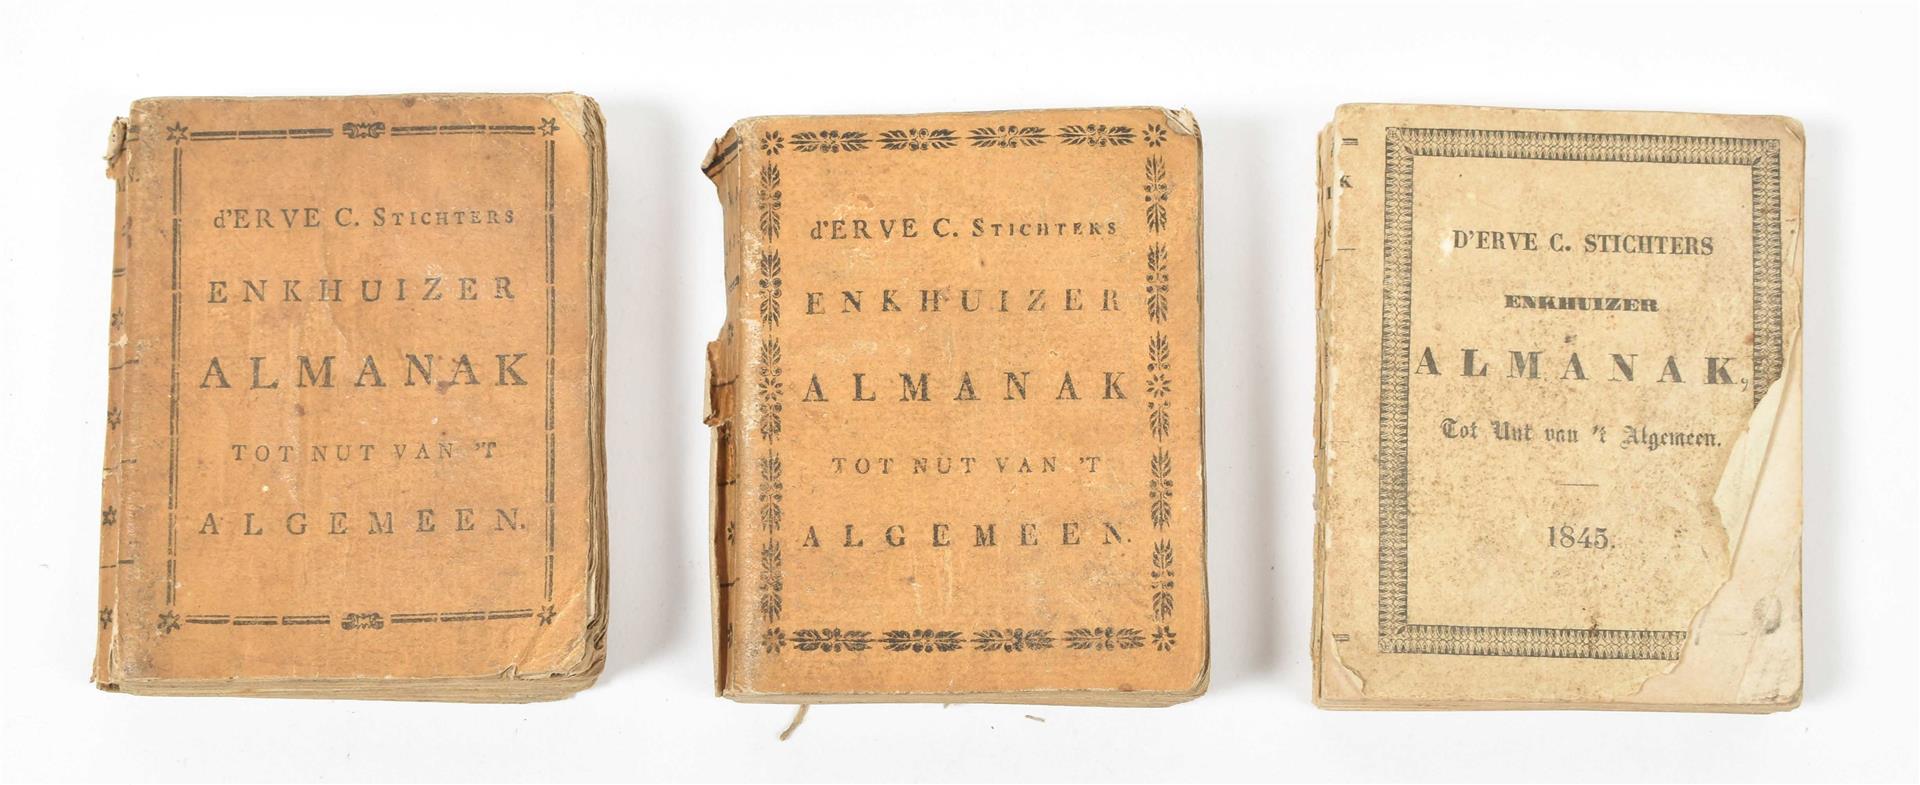 d'ERVE C. STICHTERS
ENKHUIZER
ALMANAK
TOT NUT VAN 'T
ALGEMEEN.
d'ERVE C. STICHTERS
ENKHUIZER
ALMANAK
TOT NUT VAN 'T
ALGEMEEN.
D'ERVE C. STICHTERS
ENKHUIZER
ALMANAK,
Tot Nut van 't Algemeen.
1845.